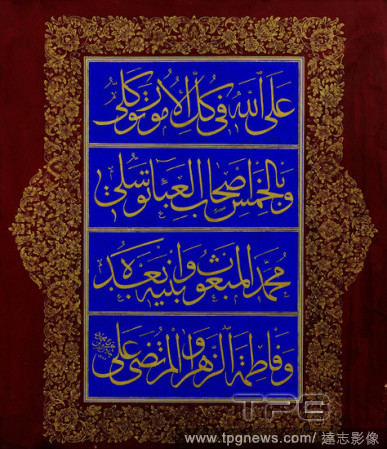 على الله في كل الامور توكلي
وبالخمس اصحاب العبا توسلي
محمد المبعوث وابنيه بعده
وفاطمة الزهرا والمرتضى علي
TPG
www.tpgnews.com/ 達志影像